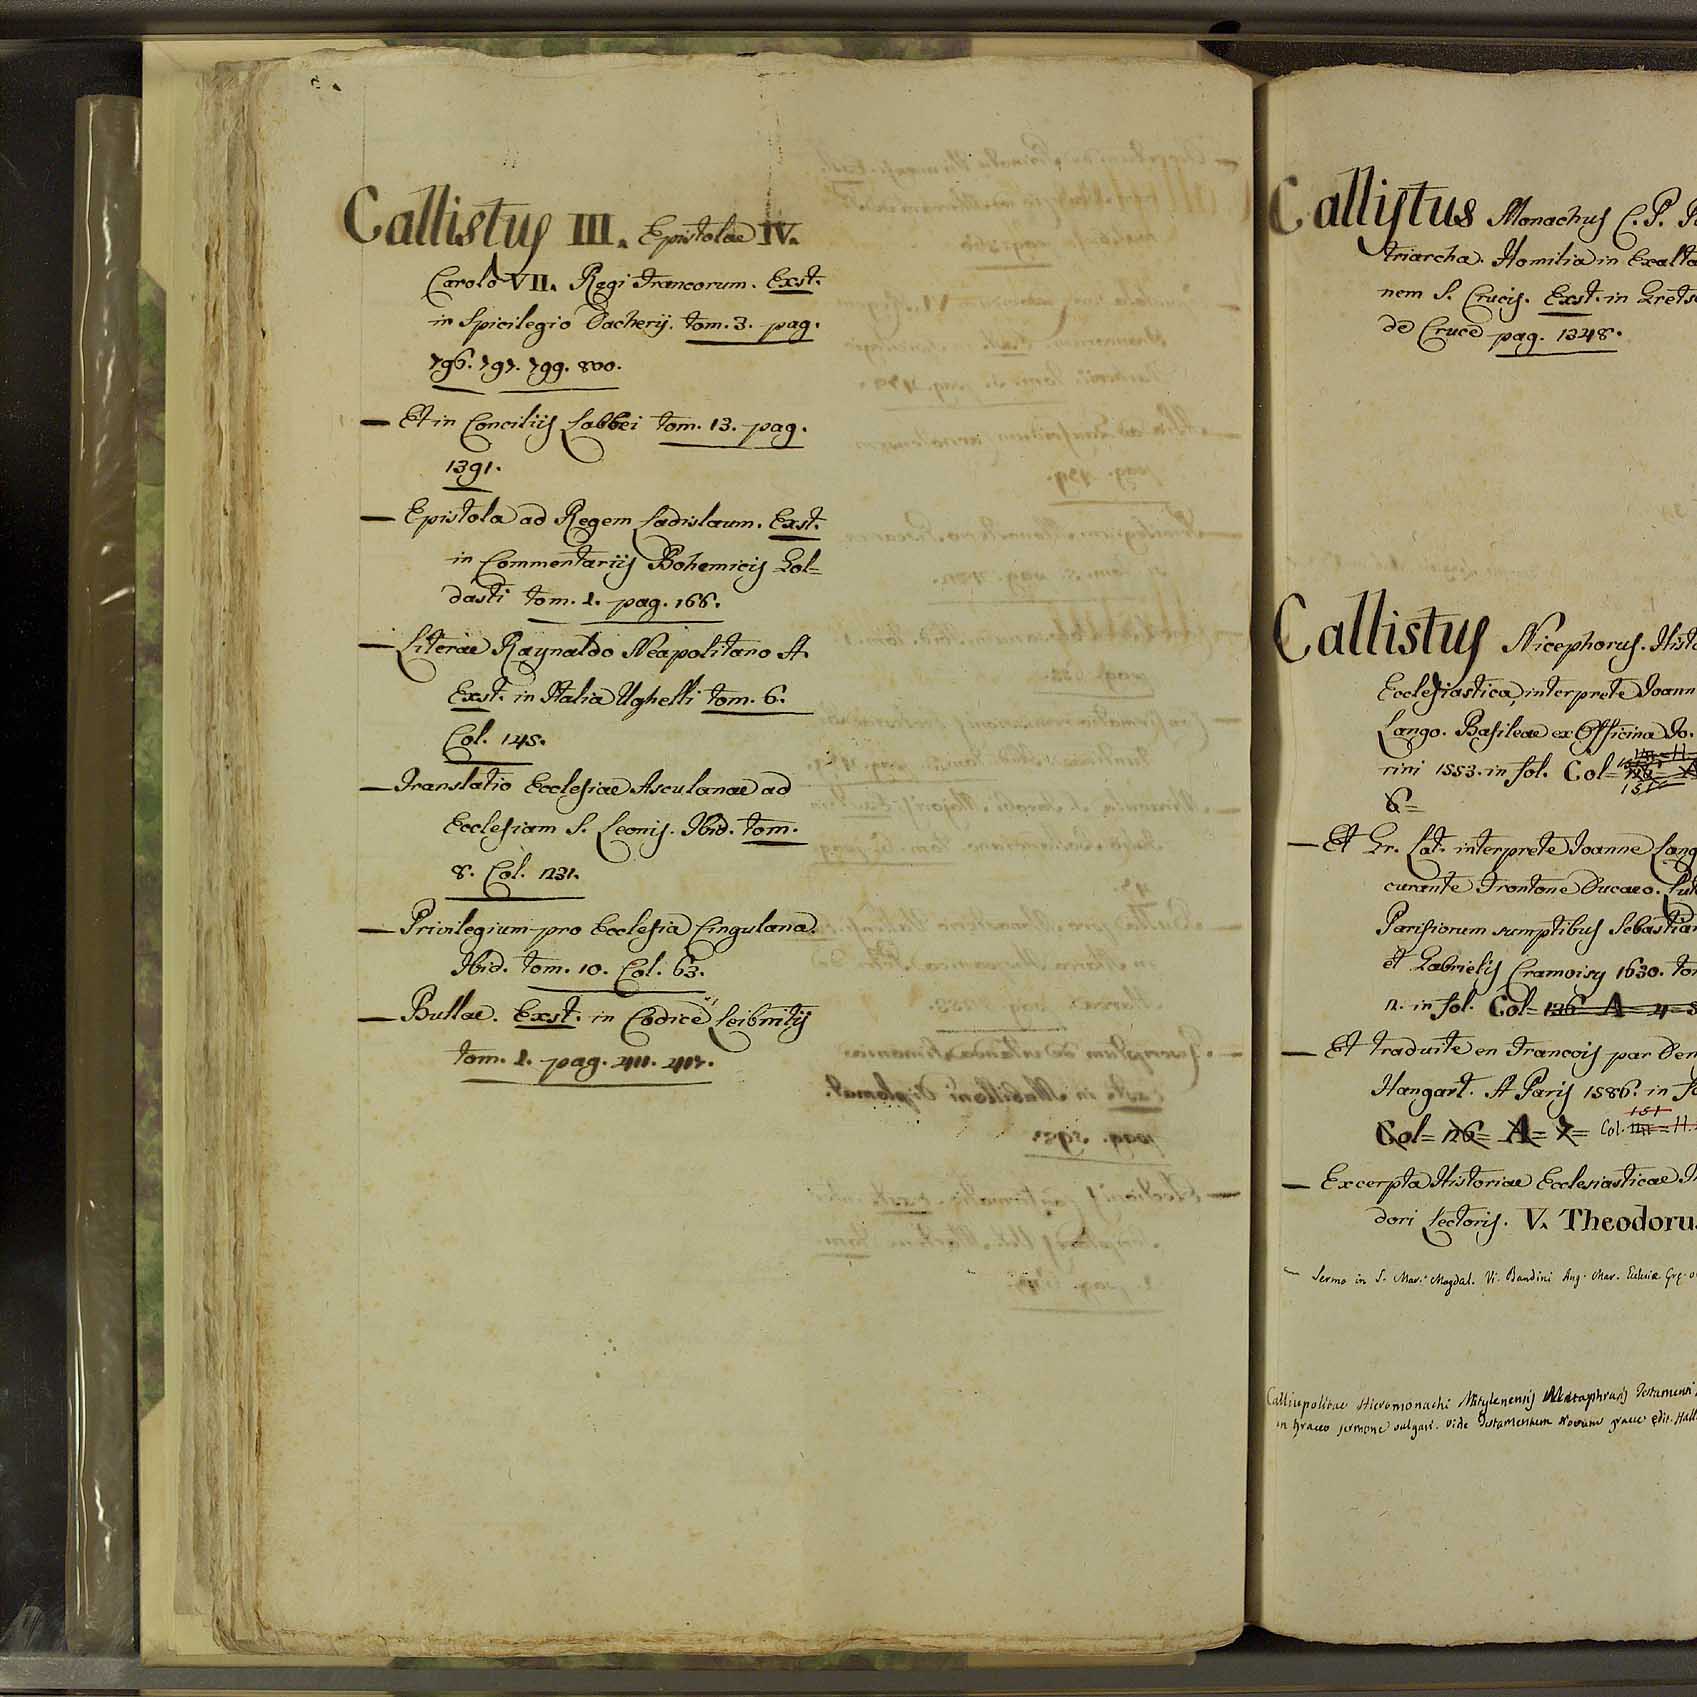 Callistus III. Epistolae IV.
Carolo VII. Regi Francorum. Exst.
in Spicilegio Dacherij. tom. 3. pag.
796. 797. 799. 800.
— Et in Conciliis Labbei tom. 13. pag.
1391.
— Epistola ad Regem Ladislaum. Exst.
in Commentariis Bohemicis Gol=
dasti tom. 1. pag. 166.
— Literae Raynaldo Neapolitano A.
Exst. in Italia Ughelli tom. 6.
Col. 145.
— Translatio Ecclesiae Asculanae ad
Ecclesiam S. Leonis. Ibid. tom.
8. Col. 1231.
— Privilegium pro Ecclesia Cingulana.
Ibid. tom. 10. Col. 63.
— Bullae. Exst. in Codice Leibnitij
tom. 1. pag. 411. 417.
Callistus Monachus C. P. Pa
triarcha. Homilia in Exalta
nem S. Crucis. Exst. in Grets
de Cruce pag. 1348.
Callistus Nicephorus. Histo
Ecclesiastica, interprete Joann
Lango. Basileae ex Officina Jo.
rini 1553. in fol. Col=
6=
— Et Gr. Lat. interprete Joanne Lang
curante Frontone Ducaeo. Lute
Parisiorum sumptibus Sebastian
et Gabrielis Cramoisy 1630. to
2. in fol. Col= 126 A= 4= 5
— Et traduite en Francois par Den
Hangart. A Paris 1586. in fo
Col= 126= A= 7= Col. = H.
151
— Excerpta Historiae Ecclesiasticae
dori Lectoris. V. Theodorus
— Sermo in S. Mar. Magdal. Vi. Bandini Aug. Mar. Eccleiae Grę.
Calliupolitae Hieromonachi Mitylenensis Metaphrasis Testamenti
in Graeco sermone vulgari. vide Testamentum Novum graece edit. Hall.